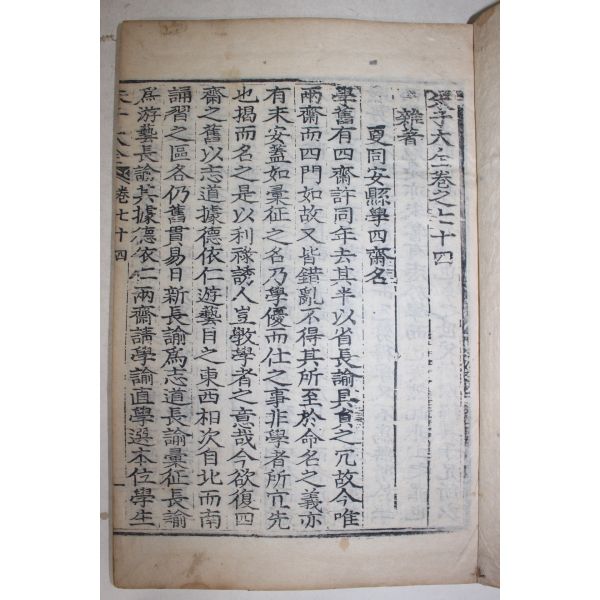 朱子大全卷之七十四
雜著
更同安縣學四齋名
學舊有四齋許同年去其半以省長諭具負之冗故今唯
兩齋而四門如故又皆錯亂不得其所至於命名之義亦
有未安蓋如彙征之名乃學優而仕之事非學者所宜先
也揭而名之是以利祿誘人豈敎學者之意哉今欲復四
齋之舊以志道據德依仁游藝目之東西相次自北而南
誦習之區各仍舊貫易日新長諭爲志道長諭彙征長諭
爲游藝長諭其據德依仁兩齋請學諭直學選本位學生
朱子大全 卷七十四 一